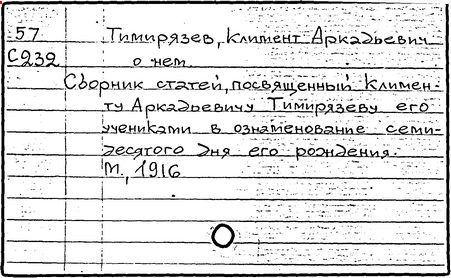 57 Тимирязев, Климент Аркадьевич
С232 о нем
Сборник статей, посвященный Климен-
ту Аркадьевичу Тимирязеву его
учениками в ознаменование семи-
десятого дня его рождения.
М., 1916